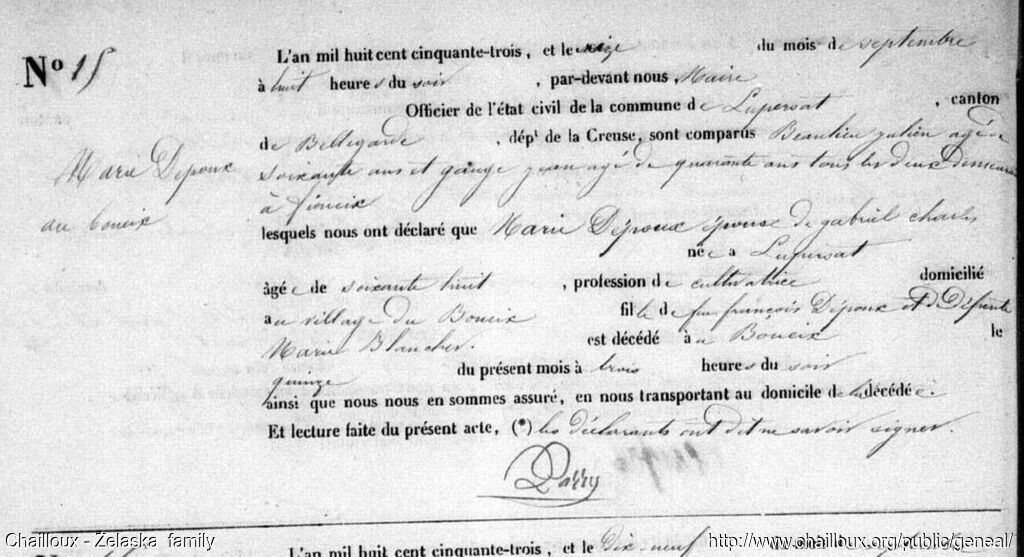 Nº 15
L'an mil huit cent cinquante-trois, et le seize du mois de septembre
à huit heures du soir, par-devant nous, Maire
Officier de l'état civil de la commune de Lupersat, canton
de Bellegarde, dépt de la Creuse, sont comparus Beaulieu julien agé de
Marie Dépoux
soixante ans et gange jean agé de quarante ans tous les deux demeurant
au boueix
à
lesquels nous ont déclaré que Marie Dépoux épouse de gabriel charles
née a Lupersat
âgée de soixante huit, profession de cultivatrice domicilié
au village du Boueix fille de feu françois Dépoux et de Défunte
Marie Blancher. est décédé à au Boueix le
quinze du présent mois à trois heures du soir
ainsi que nous nous en sommes assuré, en nous transportant au domicile de la décédée.
Et lecture faite du présent acte, (*) les déclarants ont dit ne savoir signer.
Parry
Chailloux - Żelaska family
http://www.chailloux.org/public/geneal/
L'an mil huit cent cinquante-trois, et le dix neuf